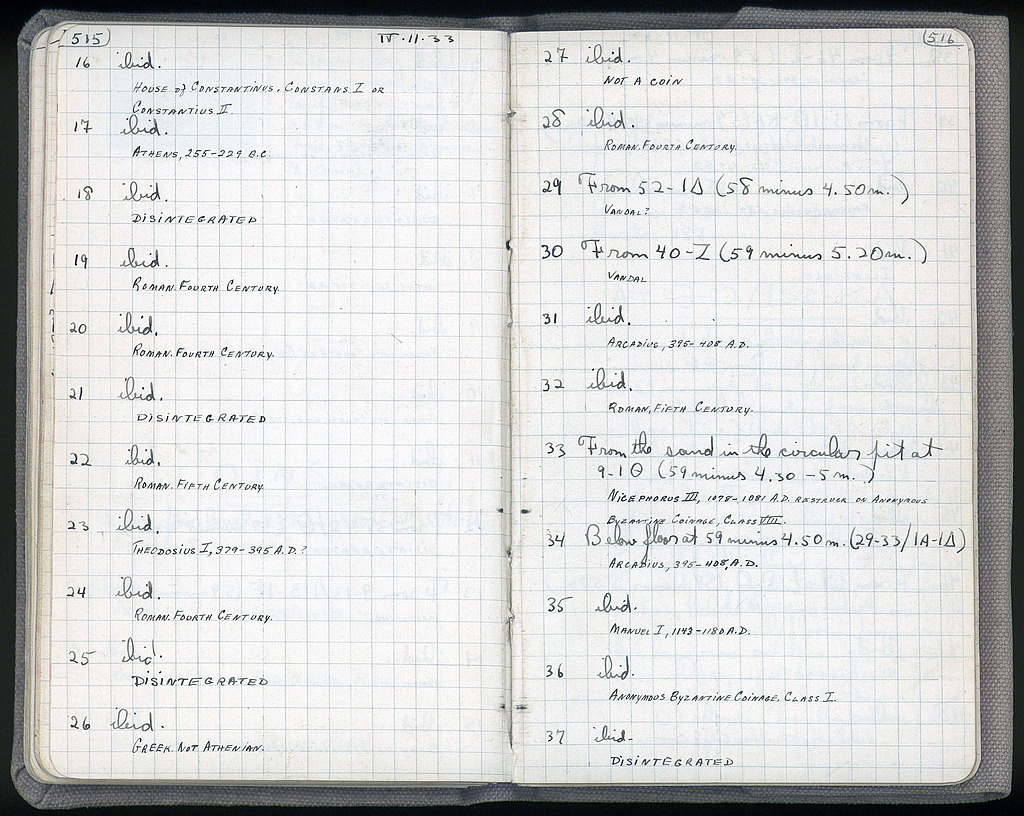 515
IV·11·33
16 ibid.
HOUSE of CONSTANTINUS. CONSTANS I OR
CONSTANTIUS II.
17 ibid.
ATHENS, 255-229 B.C.
18 ibid.
DISINTEGRATED
19 ibid.
ROMAN. FOURTH CENTURY.
20 ibid.
ROMAN. FOURTH CENTURY.
21 ibid.
DISINTEGRATED
22 ibid.
ROMAN. FIFTH CENTURY.
23 ibid.
THEODOSIUS I, 379-395 A.D.?
24 ibid.
ROMAN. FOURTH CENTURY.
25 ibid.
DISINTEGRATED
26 ibid.
GREEK. NOT ATHENIAN.
516
27 ibid.
NOT A COIN
28 ibid.
ROMAN. FOURTH CENTURY.
29 From 52-1Δ (58 minus 4.50 m.)
VANDAL?
30 From 40-Z (59 minus 5.20 m.)
VANDAL
31 ibid.
ARCADIUS, 395-408 A.D.
32 ibid.
ROMAN, FIFTH CENTURY.
33 From the sand in the circular pit at
9-1Θ (59 minus 4.30 - 5 m.)
NICEPHORUS III, 1078-1081 A.D. RESTRUCK ON ANONYMOUS
BYZANTINE COINAGE, CLASS VIII.
34 Below floor at 59 minus 4.50 m. (29-33/1A-1Δ)
ARCADIUS, 395-408, A.D.
35 ibid.
MANUEL I, 1143-1180 A.D.
36 ibid.
ANONYMOUS BYZANTINE COINAGE, CLASS I.
37 ibid-
DISINTEGRATED